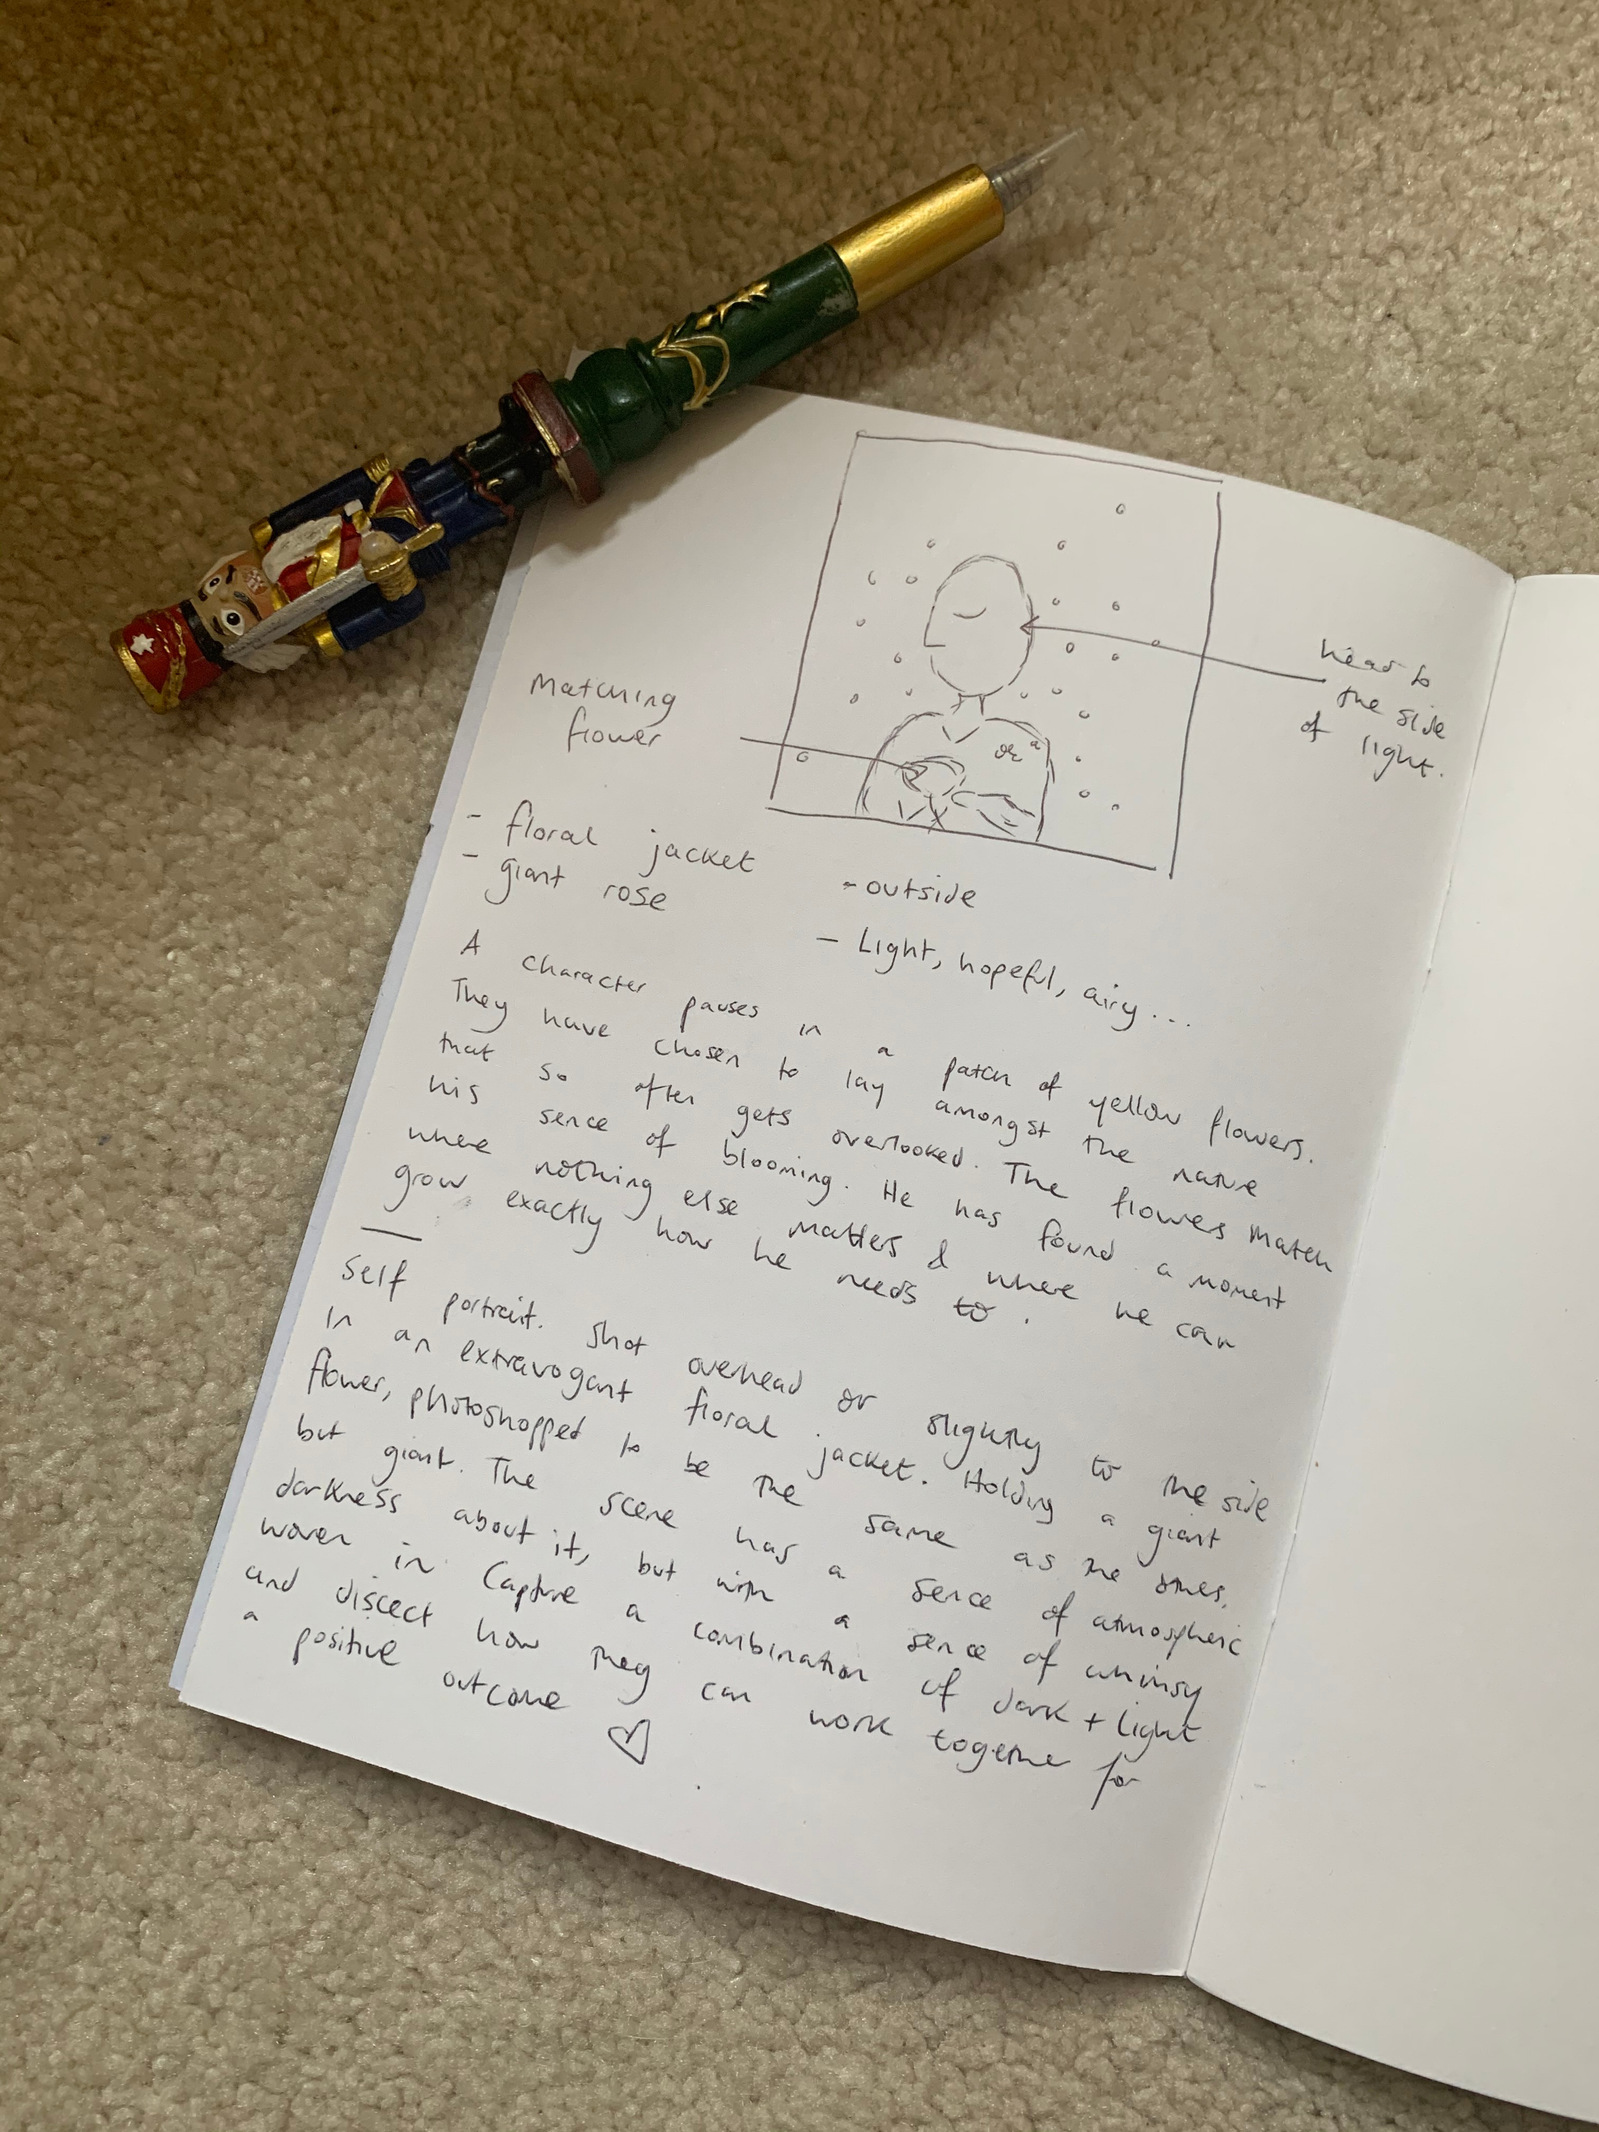 head to
the side
of light.
Matching
flower
- floral jacket
- giant rose
- outside
- Light, hopeful, airy...
A character pauses in a patch of yellow flowers.
They have chosen to lay amongst the nature
that so often gets overlooked. The flowers match
his sence of blooming. He has found a moment
where nothing else matters & where he can
grow exactly how he needs to.
Self portrait. Shot overhead or slightly to the side
in an extravogant floral jacket. Holding a giant
flower, photoshopped to be the same as the others,
but giant. The scene has a sence of atmospheric
darkness about it, but with a sence of whimsy
woven in. Capture a combination of dark + light
and discect how they can work together for
a positive outcome